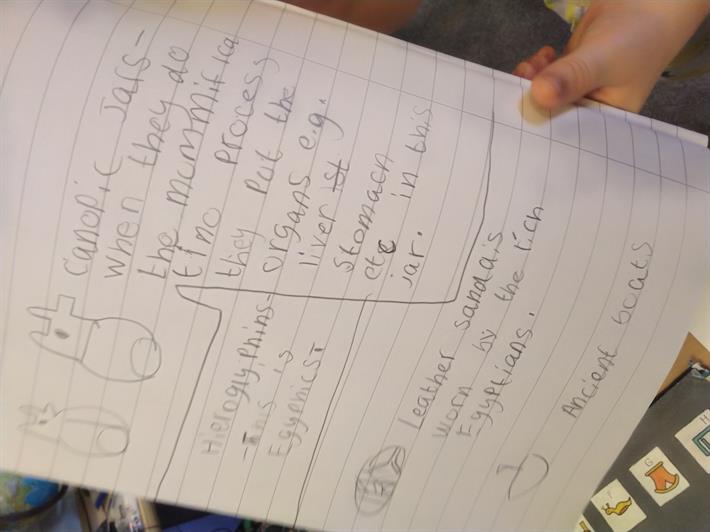 Canopic Jars-
when they do
the mummifica
tino process
they put the
organs e.g.
liver ist
stomach
etc in this
jar.
Hieroglyphins-
-This is
Egyphics.
Leather sandals
worn by the rich
Egyptians.
Ancient boats
F
G
H